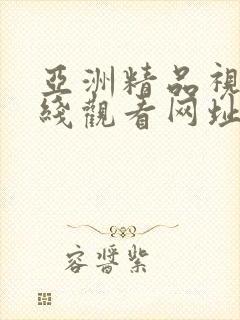 亞洲精品視
綫觀看网址
容醬紫